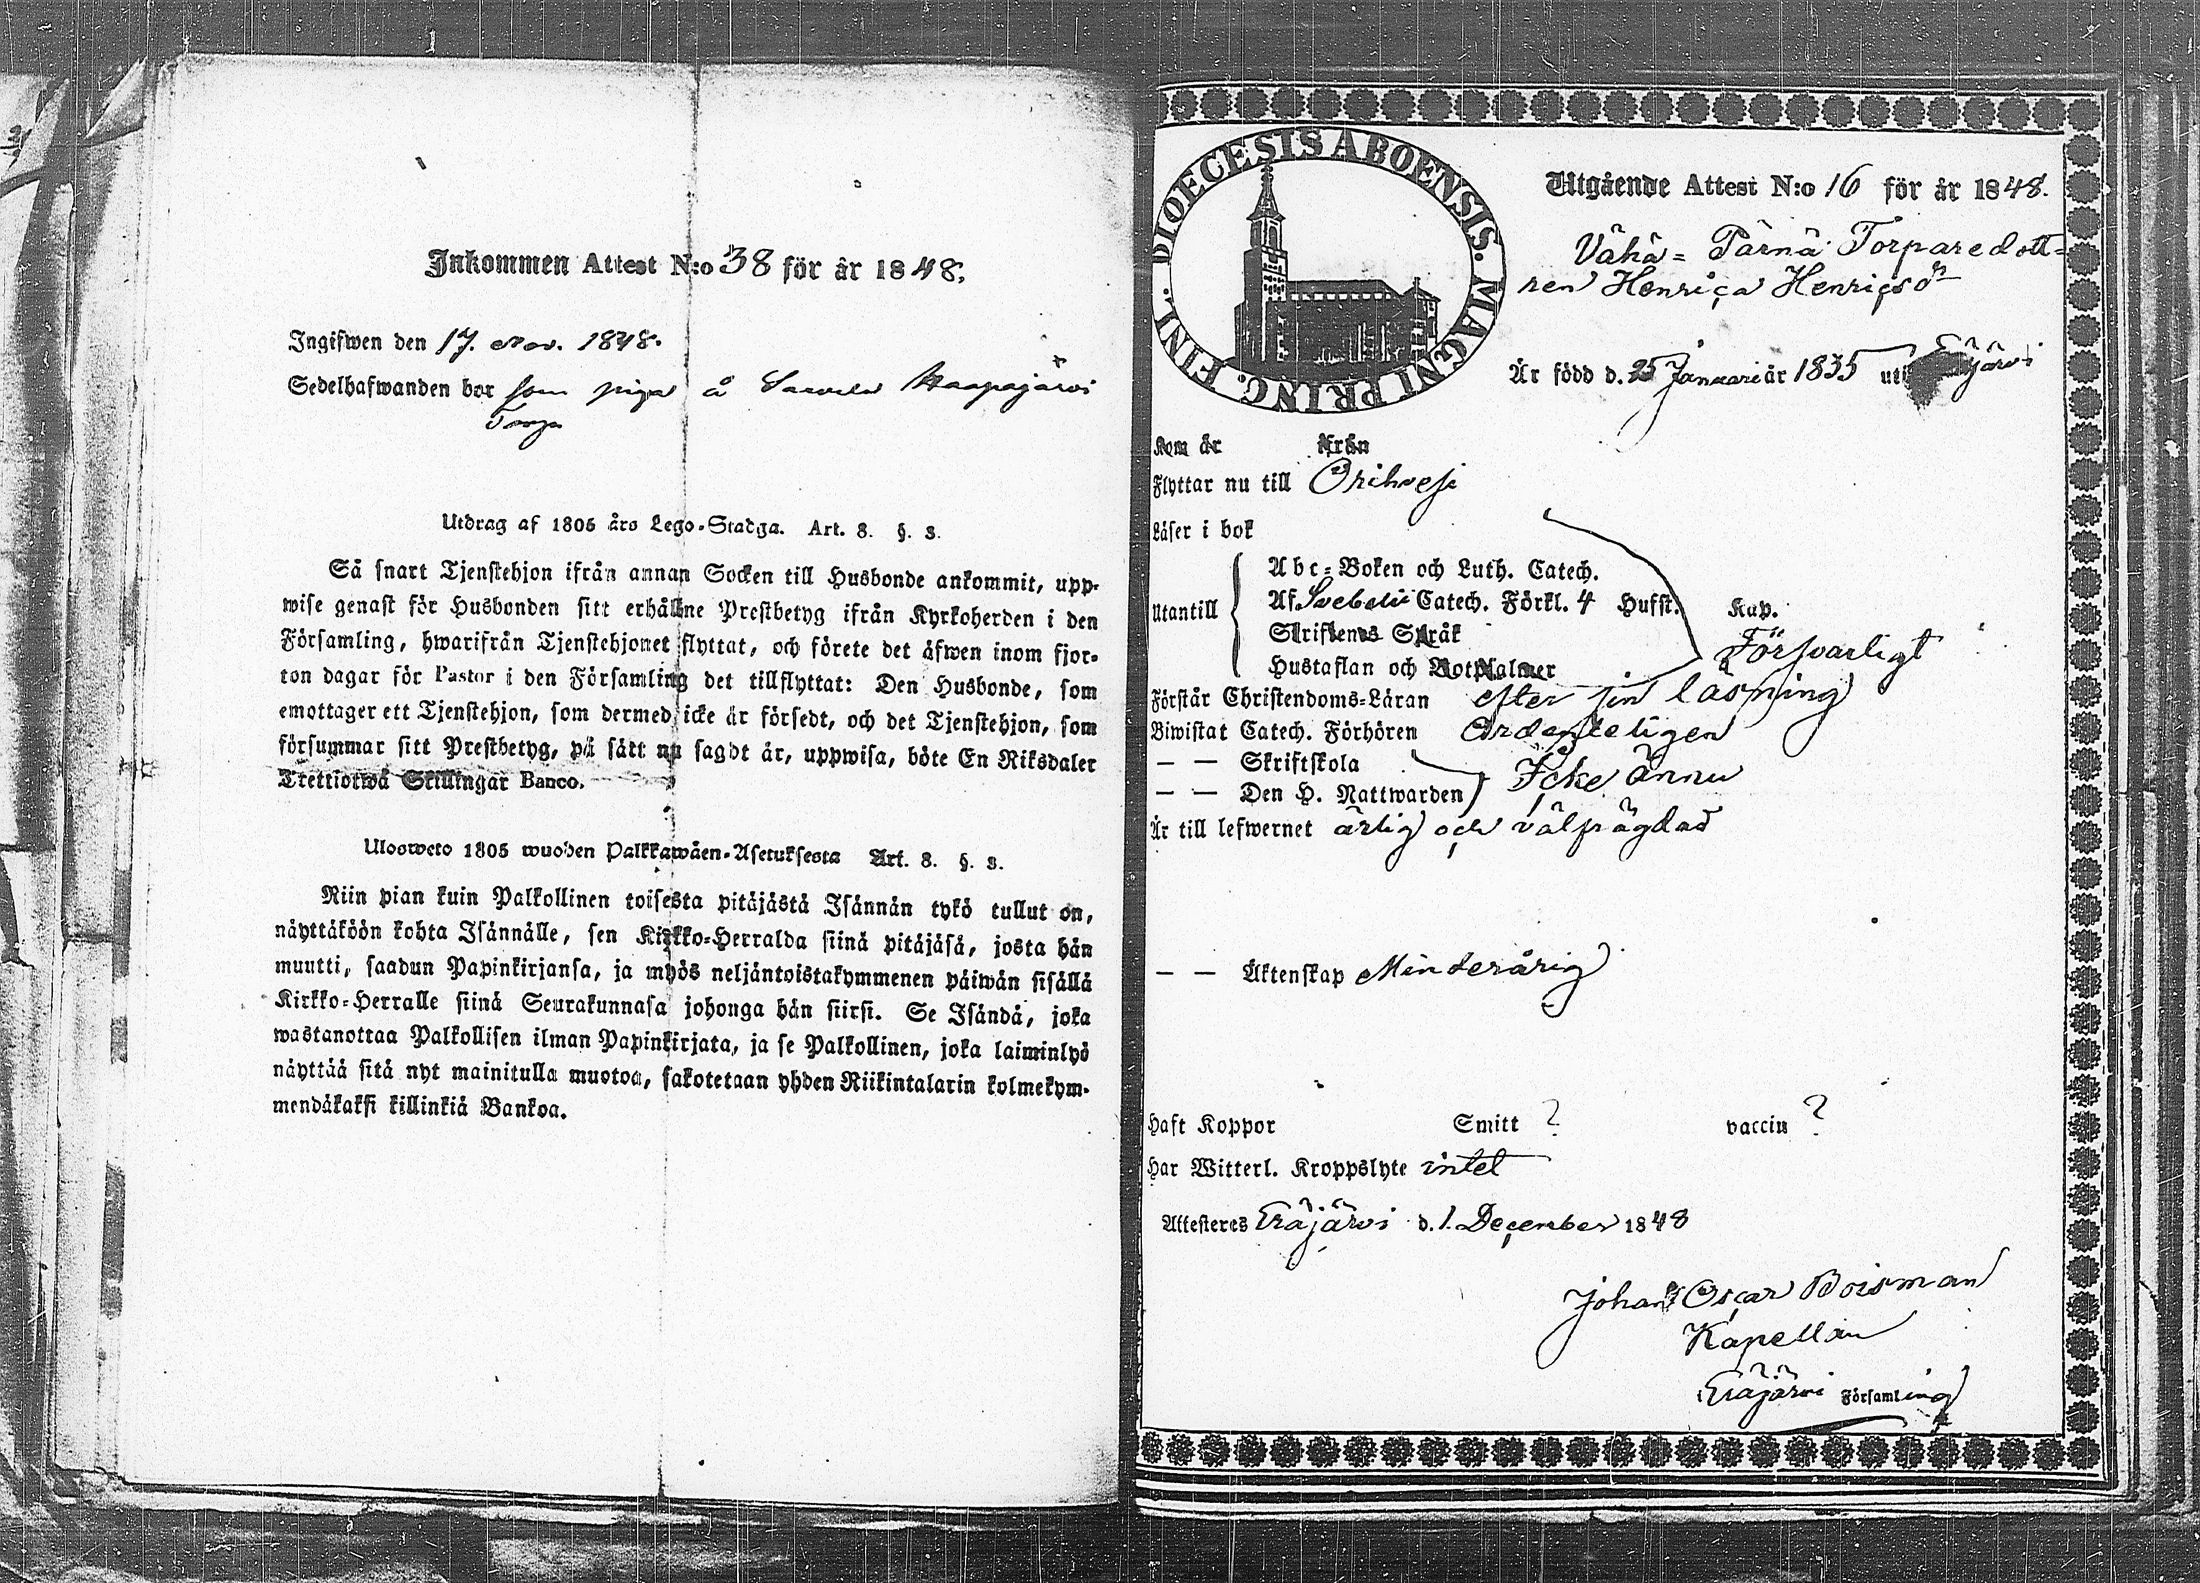 Inkommen Attest N:o 38 för år 1848.
Ingifwen den 17. Nov. 1848.
Sedelhafwanden bor som piga å Haapajärvi
Torp
Utdrag af 1805 års Lego-Stadga. Art. 8. §. 3.
Så snart Tjenstehjon ifrån annan Socken till Husbonde ankommit, upp-
wise genast för Husbonden sitt erhållne Prestbetyg ifrån Kyrkoherden i den
Församling, hwarifrån Tjenstehjonet flyttat, och förete det äfwen inom fjor-
ton dagar för Pastor i den Församling det tillflyttat: Den Husbonde, som
emottager ett Tjenstehjon, som dermed icke är försedt, och det Tjenstehjon, som
försummar sitt Prestbetyg, på sätt nu sagdt är, uppwisa, böte En Riksdaler
Trettiotwå Skillingar Banco.
Ulosweto 1805 wuoden Palkkawäen-Asetuksesta Art. 8. §. 3.
Niin pian kuin Palkollinen toisesta pitäjästä Isännän tykö tullut on,
näyttäköön kohta Isännälle, sen Kirkko-Herralda siinä pitäjäsä, josta hän
muutti, saadun Papinkirjansa, ja myös neljäntoistakymmenen päiwän sisällä
Kirkko-Herralle siinä Seurakunnasa johonga hän siirsi. Se Isändä, joka
wastanottaa Palkollisen ilman Papinkirjata, ja se Palkollinen, joka laiminlyö
näyttää sitä nyt mainitulla muotoa, sakotetaan yhden Riikintalarin kolmekym-
mendäkaksi killinkiä Bankoa.
DIOECESIS ABOENSIS. MAGNI PRINC. FINL.
Utgående Attest N:o 16 för år 1848.
Vähä-Pärnä Torparedott-
ren Henrica Henricsdr
Är född d. 25 Januari år 1835 uti Eräjärvi
Kom år från
Flyttar nu till Orihvesi
Läser i bok
Utantill
Abc-Boken och Luth. Catech.
Af Svebelii Catech. Förkl. 4 Hufst. Kap.
Skriftenes Språk
Försvarligt
Hustaflan och Botpsalmer
Förstår Christendoms-Läran efter sin läsning
Biwistat Catech. Förhören Ordenteligen
— — Skriftskola
— — Den H. Nattwarden Icke ännu
Är till lefwernet ärlig och välfrägdad
— — Äktenskap Minderårig
Haft Koppor Smitt ? vaccin ?
Har Witterl. Kroppslyte intet
Attesteres Eräjärvi d. 1. December 1848
Johan Oscar Boisman
Kapellan
Eräjärvi Församling